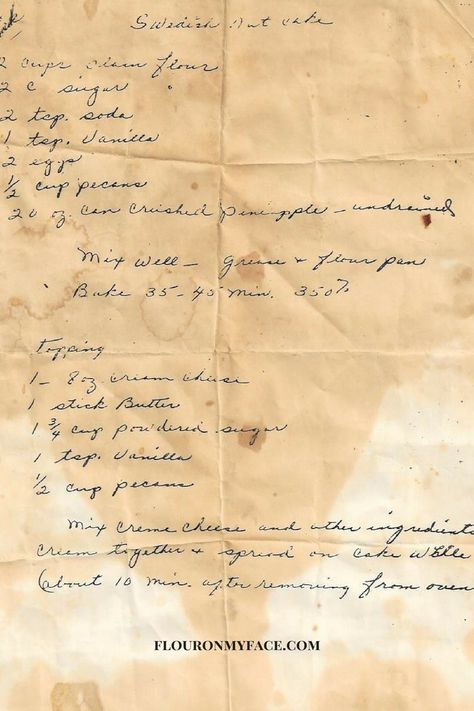 Swedish Nut Cake
2 cups plain flour
2 c sugar
2 tsp. soda
1 tsp. Vanilla
2 eggs
1/2 cup pecans
20 oz. can Crushed pineapple - undrained
Mix Well - Grease + flour pan
Bake 35 - 45 Min. 350°
Topping
1 - 8 oz cream cheese
1 stick Butter
1 3/4 cup powdered sugar
1 tsp. Vanilla
1/2 cup pecans
Mix creme cheese and other ingredients
Cream together + spread on cake
(about 10 Min. after removing from oven
FLOURONMYFACE.COM